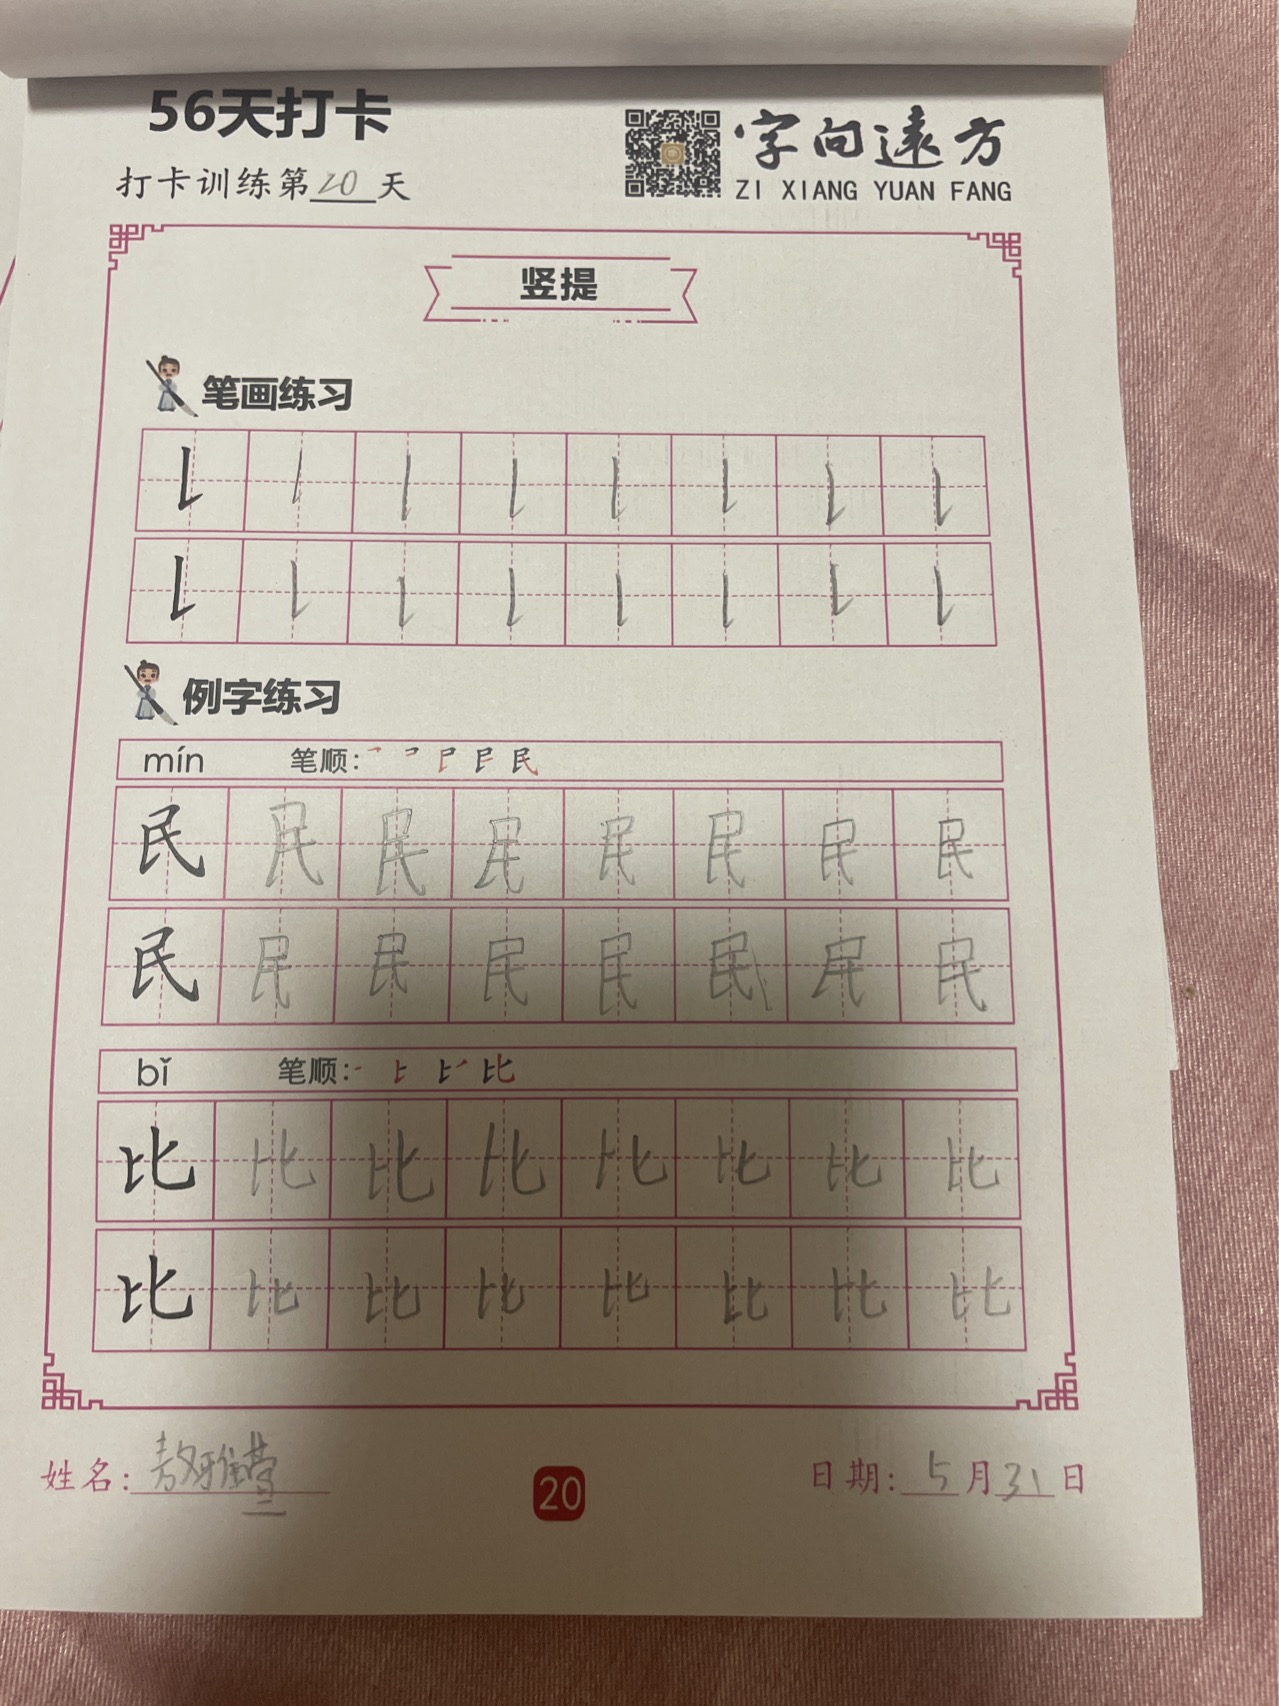 56天打卡
字向远方
打卡训练第20天
ZI XIANG YUAN FANG
竖提
笔画练习
例字练习
mín 笔顺:
民 民 民 民 民 民 民 民
民 民 民 民 民 民 民 民
bǐ 笔顺:
比 比 比 比 比 比 比 比
比 比 比 比 比 比 比 比
姓名:敖雅萱
20
日期:5月31日